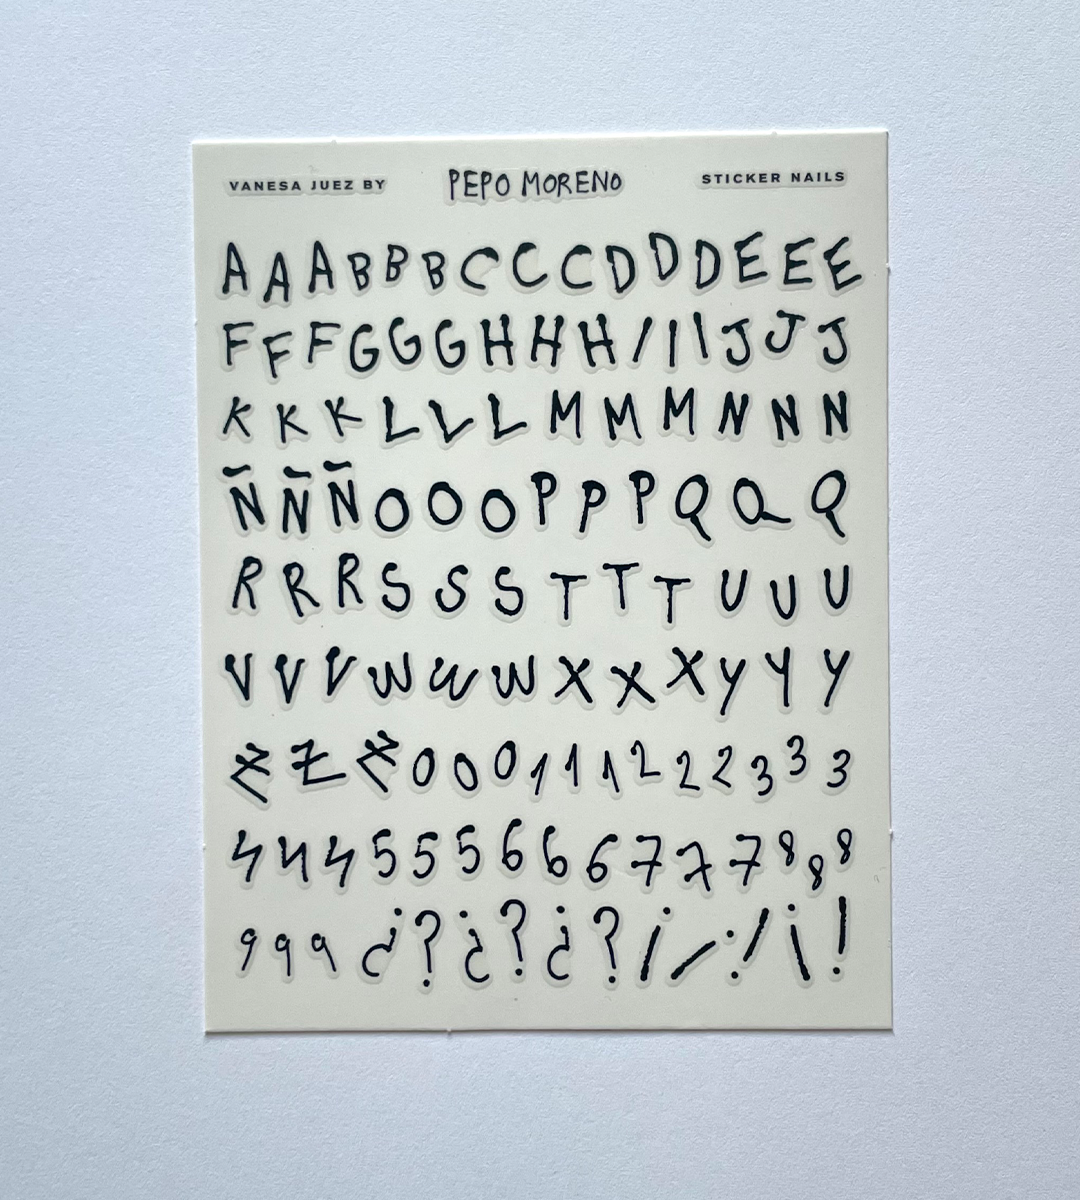 VANESA JUEZ BY PEPO MORENO STICKER NAILS
A A A B B B C C C D D D E E E
F F F G G G H H H I I I J J J
K K K L L L M M M N N N
Ñ Ñ Ñ O O O P P P Q Q Q
R R R S S S T T T U U U
V V V W W W X X X Y Y Y
Z Z Z 0 0 0 1 1 1 2 2 2 3 3 3
4 4 4 5 5 5 6 6 6 7 7 7 8 8 8
9 9 9 ¿ ? ¿ ? ¿ ? ¡ ! ¡ ! ¡ !